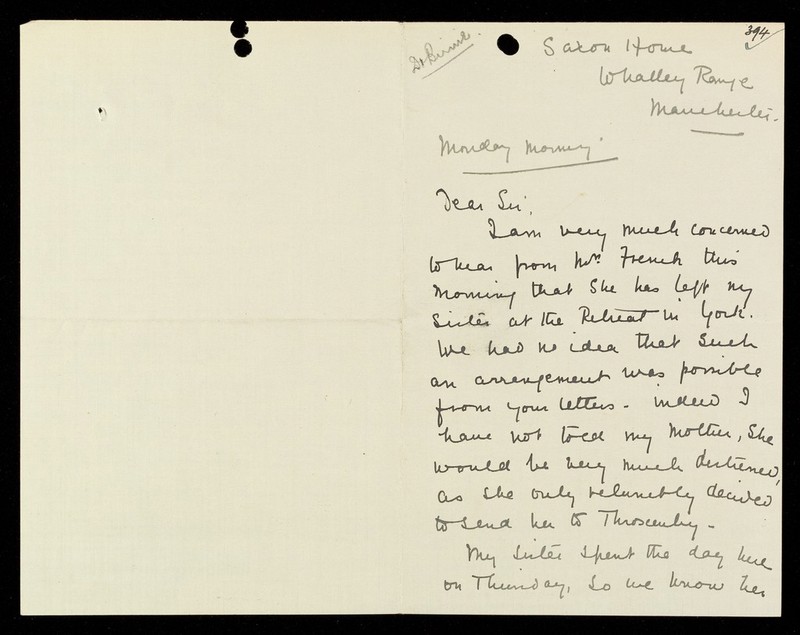 394
Dr Birnie.
Saxon Home
Whalley Range
Manchester.
Monday Morning
Dear Sir,
I am very much concerned
to hear from Mrs. French this
Morning that She has left my
Sister at the Retreat in York.
We had no idea that Such
an arrangement was possible
from your letters - indeed I
have not told my Mother, She
would be very much distressed,
as she only reluctantly decided
to send her to
My Sister spent the day here
on Thursday, So we know her